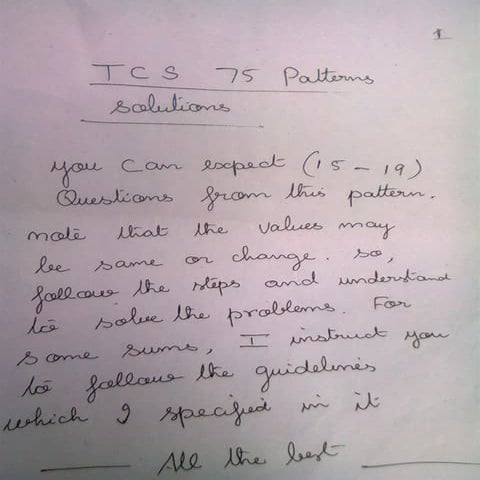 1
TCS 75 Patterns
Solutions
You Can expect (15 - 19)
Questions from this pattern.
note that the values may
be same or change. so,
follow the steps and understand
to solve the problems. For
some sums, I instruct you
to follow the guidelines
which I specified in it
All the best